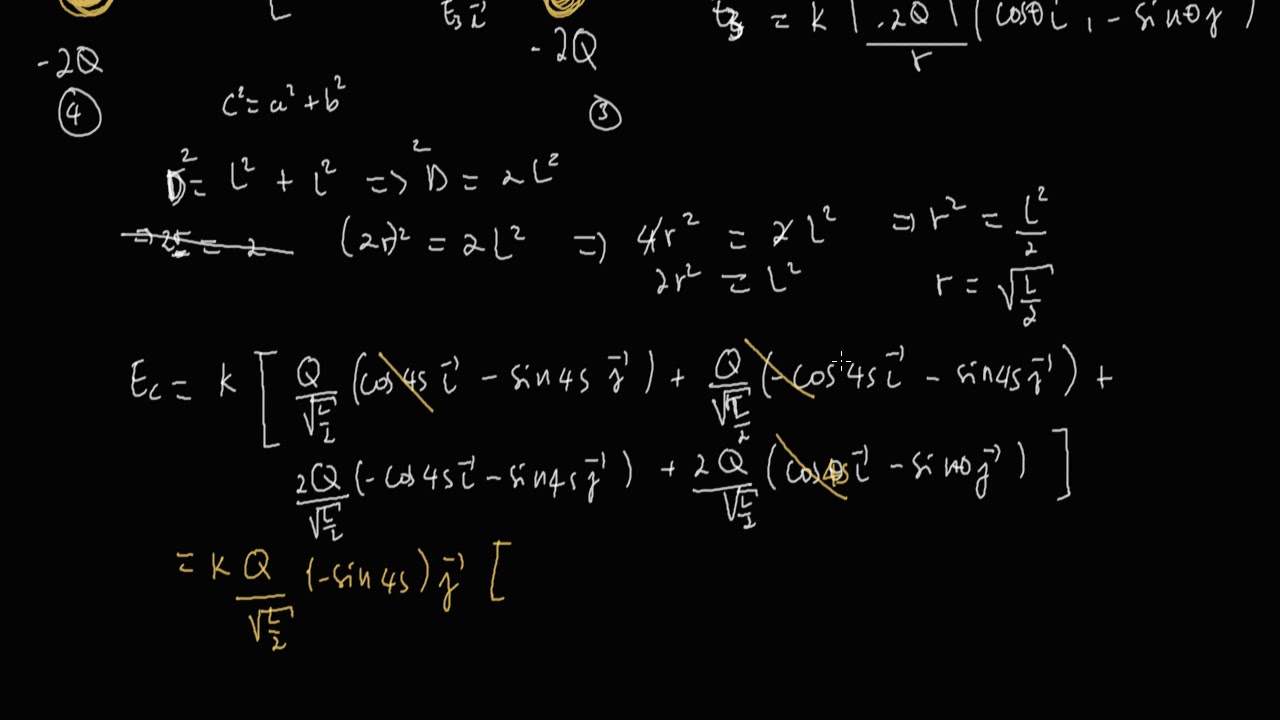 L E₃i⃗ = k |-2Q| / r (cosθi⃗, -sinθj⃗)
-2Q -2Q
④ c² = a² + b² ③
D² = L² + L² => D² = 2L²
(2r)² = 2L² => 4r² = 2L² => r² = L²/2
2r² = L² r = √(L/2)
Ec = k [ Q/√(L/2) (cos45i⃗ - sin45j⃗) + Q/√(L/2) (-cos45i⃗ - sin45j⃗) +
2Q/√(L/2) (-cos45i⃗ - sin45j⃗) + 2Q/√(L/2) (cos45i⃗ - sinθj⃗) ]
= k Q/√(L/2) (-sin45)j⃗ [